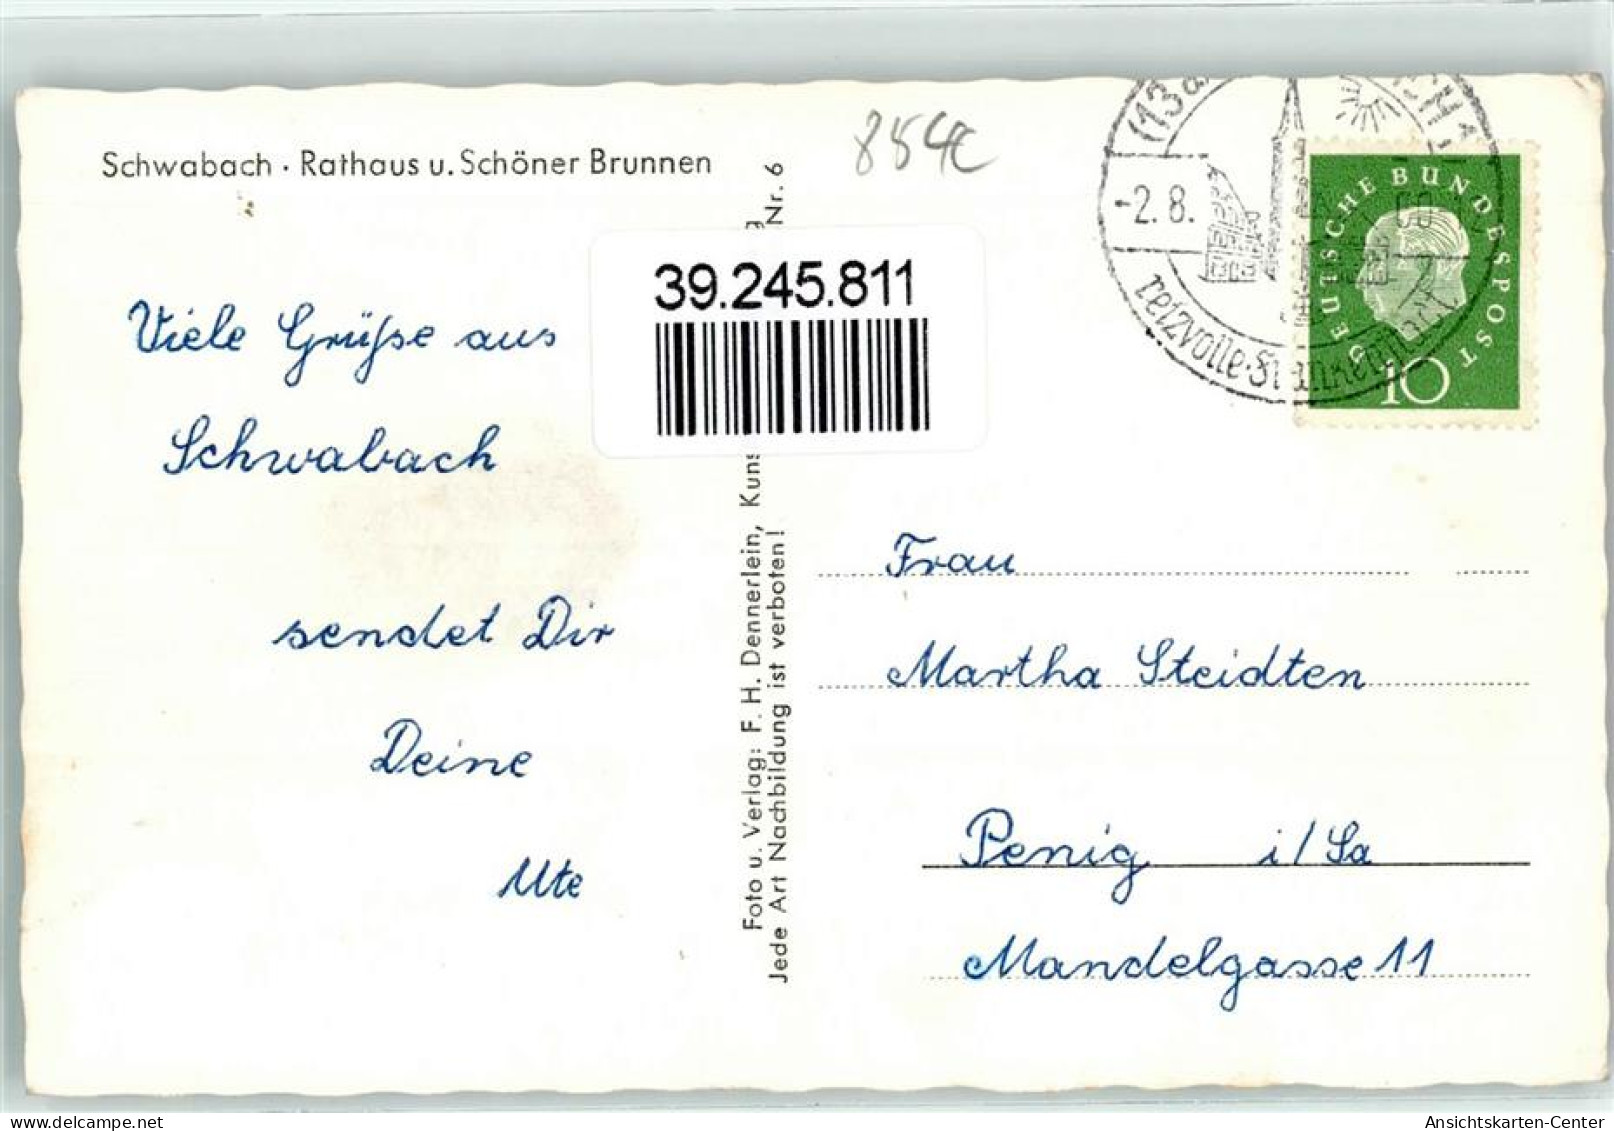 Schwabach · Rathaus u. Schöner Brunnen
854c
Viele Grüße aus
Schwabach
sendet Dir
Deine
Ute
39.245.811
Foto u. Verlag: F. H. Dennerlein, Kuns
Nr. 6
Jede Art Nachbildung ist verboten!
(13a
-2.8.
reizvolle Frankenstadt
DEUTSCHE BUNDESPOST
10
Frau
Martha Steidten
Penig i/Sa
Mandelgasse 11
Ansichtskarten-Center